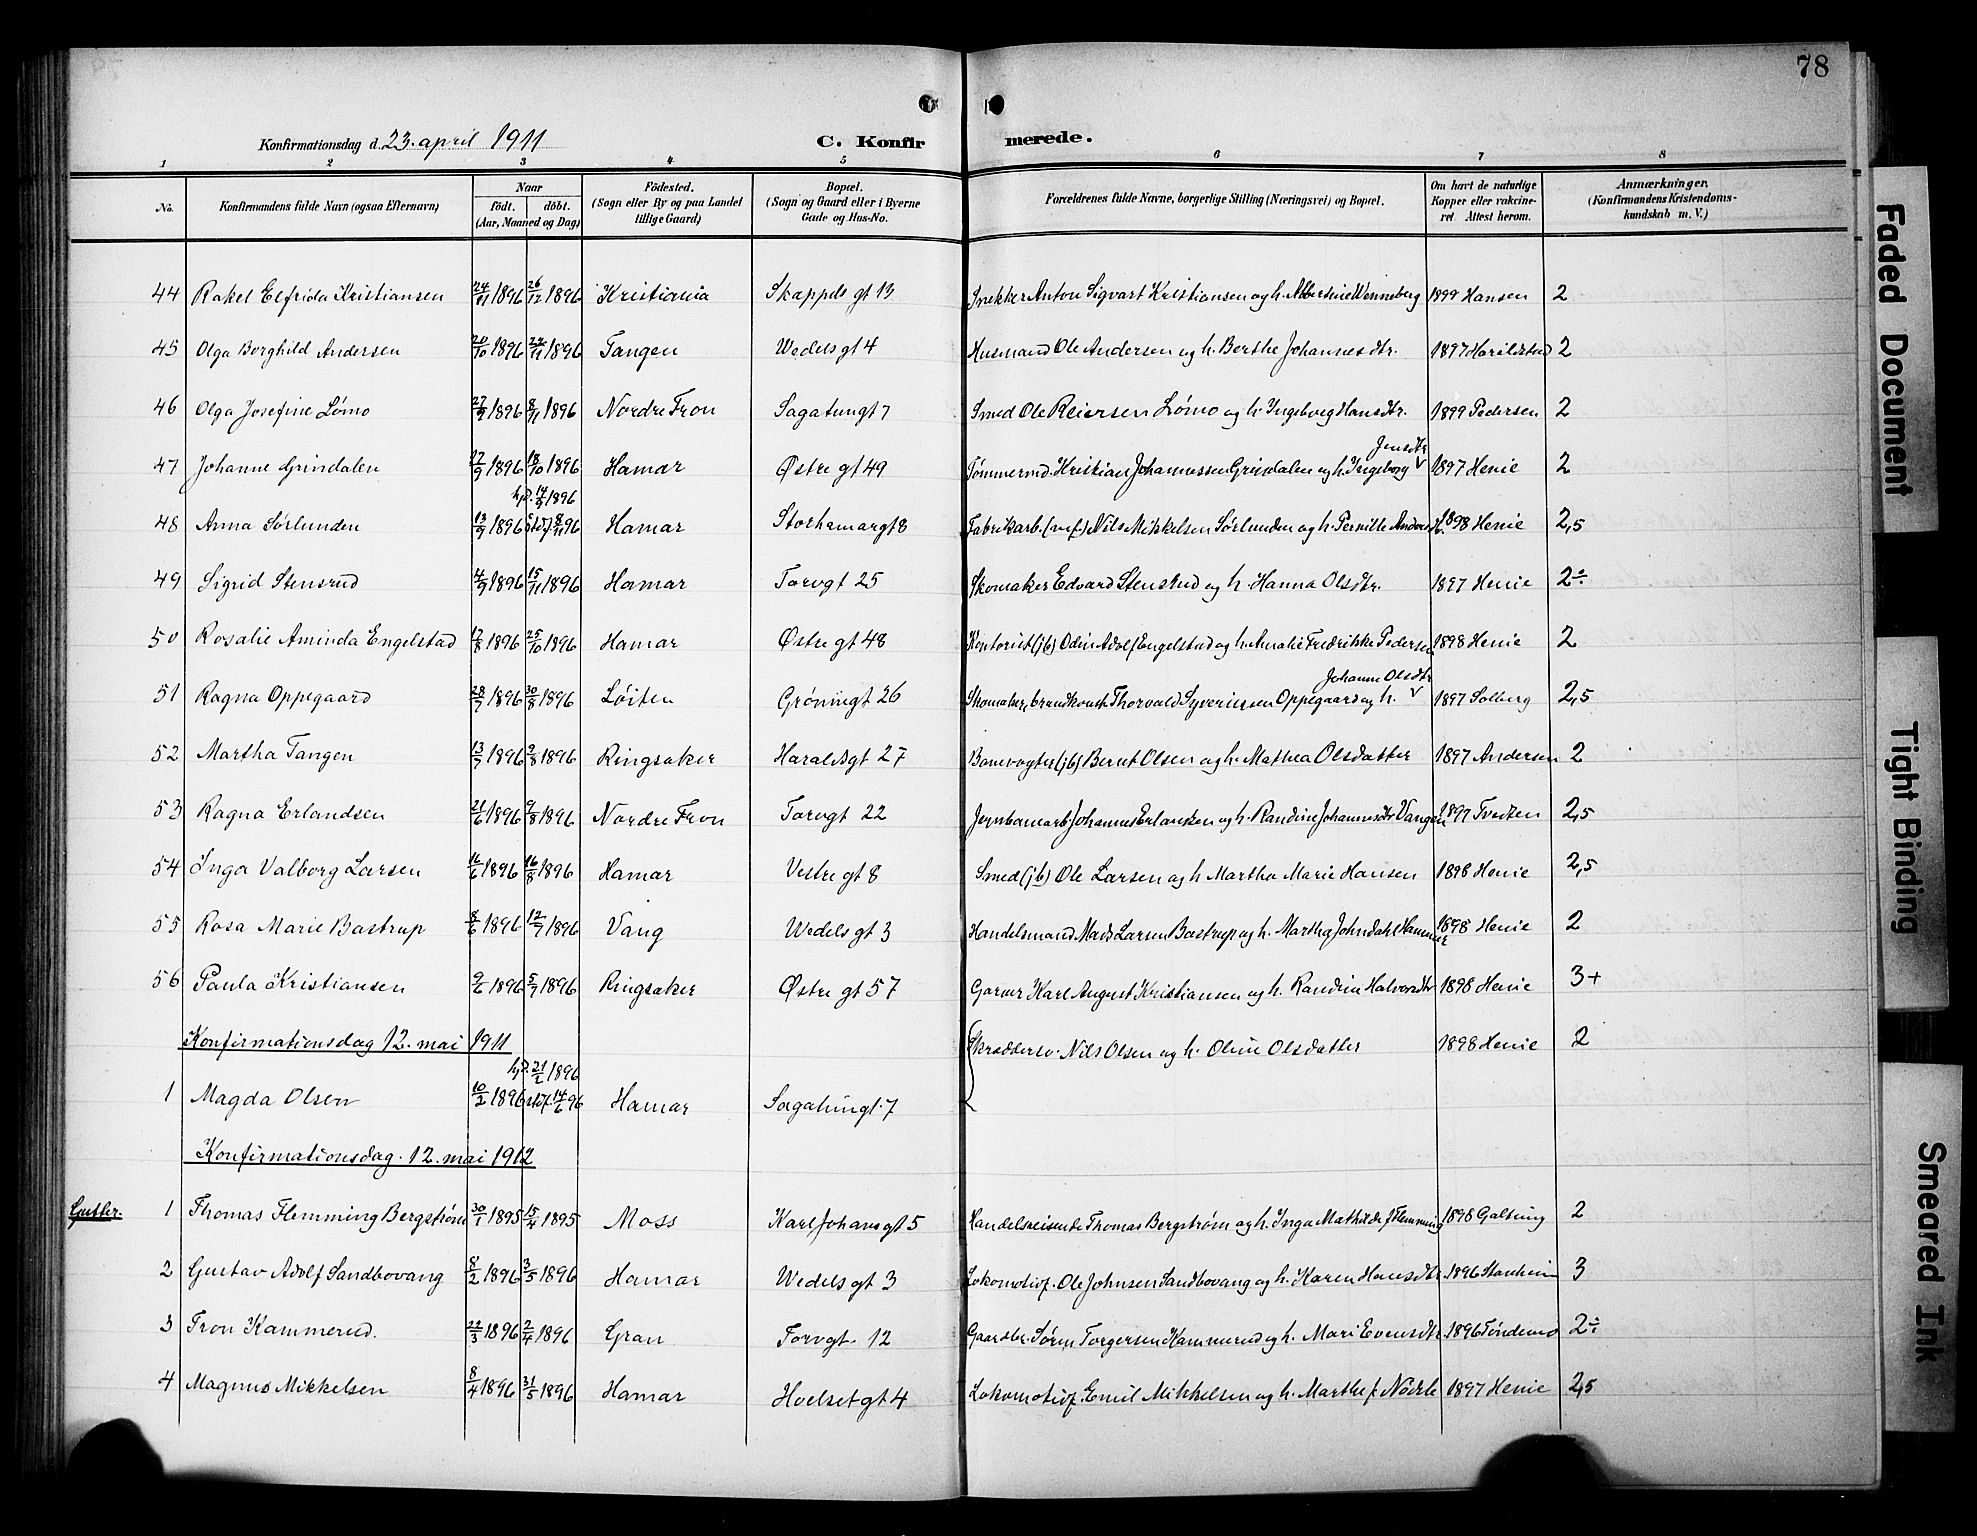 78
Konfirmationsdag d. 23. april 1911 C. Konfirmerede.
1 2 3 4 5 6 7 8
No. Konfirmandens fulde Navn (ogsaa Efternavn) Naar født. døbt. (Aar, Maaned og Dag) Fødested. (Sogn eller By og paa Landet tillige Gaard) Bopæl. (Sogn og Gaard eller i Byerne Gade og Hus-No. Forældrenes fulde Navne, borgerlige Stilling (Næringsvei) og Bopæl. Om havt de naturlige Kopper eller vakcineret Attest herom. Anmærkninger. (Konfirmandens Kristendomskundskab m. V.)
44 Rakel Elfrida Kristiansen 24/11 1896 26/12 1896 Kristiania Skappels gt 13 Snekker Anton Sigvart Kristiansen og h. Albertine Wenneberg 1899 Hansen 2
45 Olga Borghild Andersen 20/10 1896 22/11 1896 Tangen Wedels gt 4 Husmand Ole Andersen og h. Berthe Johannesdtr. 1897 Harildstad 2
46 Olga Josefine Lømo 27/9 1896 8/11 1896 Nordre Fron Sagatungt 7 Smed Ole Reiersen Lømo og h. Ingeborg Hansdtr. 1899 Pedersen 2
Jensdtr
47 Johanne Grindalen 27/9 1896 18/10 1896 Hamar Østre gt 49 Tømmermd. Kristian Johannessen Grindalen og h. Ingeborg V 1897 Henie 2
hjd. 14/9 1896
48 Anna Sørlunden 13/9 1896 stdf 8/11 96 Hamar Storhamargt 8 Fabrikarb. Nils Mikkelsen Sørlunden og h. Pernille 1898 Henie 2,5
49 Sigrid Stensrud 4/9 1896 15/11 1896 Hamar Torvgt 25 Skomaker Edvard Stensrud og h. Hanna Olsdtr. 1897 Henie 2÷
50 Rosalie Aminda Engelstad 17/8 1896 25/10 1896 Hamar Østre gt 48 Kontorist (jb) Odin Adolf Engelstad og h. Amalie Fredrikke Pedersen 1898 Henie 2
Johanne Olsdtr
51 Ragna Oppegaard 28/7 1896 30/8 1896 Løiten Grønnegt 26 Skomaker, brandkonst. Thorvald Syverinsen Oppegaard og h. V 1897 Solberg 2,5
52 Martha Tangen 13/7 1896 9/8 1896 Ringsaker Haraldsgt 27 Banevogter (jb) Bernt Olsen og h. Mathea Olsdatter 1897 Andersen 2
53 Ragna Erlandsen 21/6 1896 9/8 1896 Nordre Fron Torvgt 22 Jernbanearb. Johannes Erlandsen og h. Randine Johannesdtr Vangen 1897 Tvedten 2,5
54 Inga Valborg Larsen 16/6 1896 16/8 1896 Hamar Vestre gt 8 Smed (jb) Ole Larsen og h. Martha Marie Hansen 1898 Henie 2,5
55 Rosa Marie Bastrup 8/6 1896 12/7 1896 Vang Wedels gt 3 Handelsmand Mads Larsen Bastrup og h. Martha Johndahl Hammer 1898 Henie 2
56 Paula Kristiansen 9/6 1896 5/7 1896 Ringsaker Østre gt 57 Garver Karl August Kristiansen og h. Randine Halvorsdtr 1898 Henie 3+
Konfirmationsdag 12. mai 1911
hjd. 21/2 1896
1 Magda Olsen 10/2 1896 stdf. 14/6 96 Hamar Sagatungt. 7 Skræddersv. Nils Olsen og h. Oline Olsdatter 1898 Henie 2
Konfirmationsdag 12. mai 1912
Gutter.
1 Thomas Flemming Bergstrøm 30/1 1895 15/4 1895 Moss Karl Johans gt 5 Handelsreisende Thomas Bergstrøm og h. Inga Mathilde f Flemming 1898 Galtung 2
2 Gustav Adolf Sandbovang 8/2 1896 3/5 1896 Hamar Wedels gt 3 Lokomotivf. Ole Johnsen Sandbovang og h. Karen Hansdtr. 1896 Stenheim 3
3 Tron Kammerud. 22/3 1896 2/4 1896 Gran Torvgt. 12 Gaardbr. Søren Torgersen Kammerud og h. Mari Evensdtr. 1896 2÷
4 Magnus Mikkelsen 8/4 1896 31/5 1896 Hamar Hoelsetgt 4 Lokomotivf. Emil Mikkelsen og h. Marthe f. Nøkle 1897 Henie 2,5
Faded Document
Tight Binding
Smeared Ink